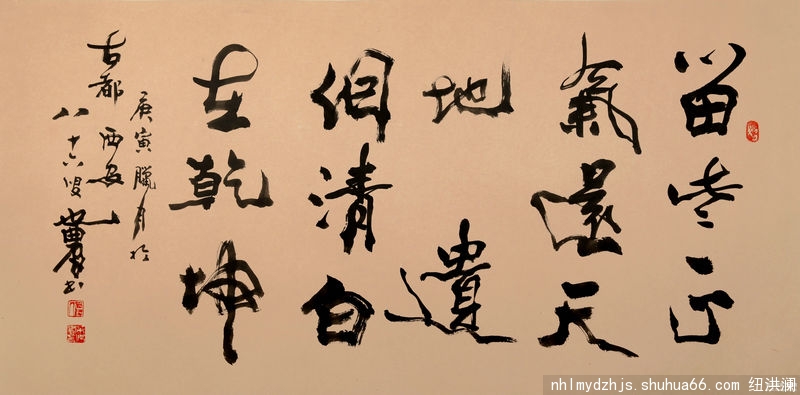 留些正
氣還天
地遺
個清白
在乾坤
庚寅臘月於
古都西安
八十六叟書
nhlmydzhjs.shuhua66.com 纽洪澜